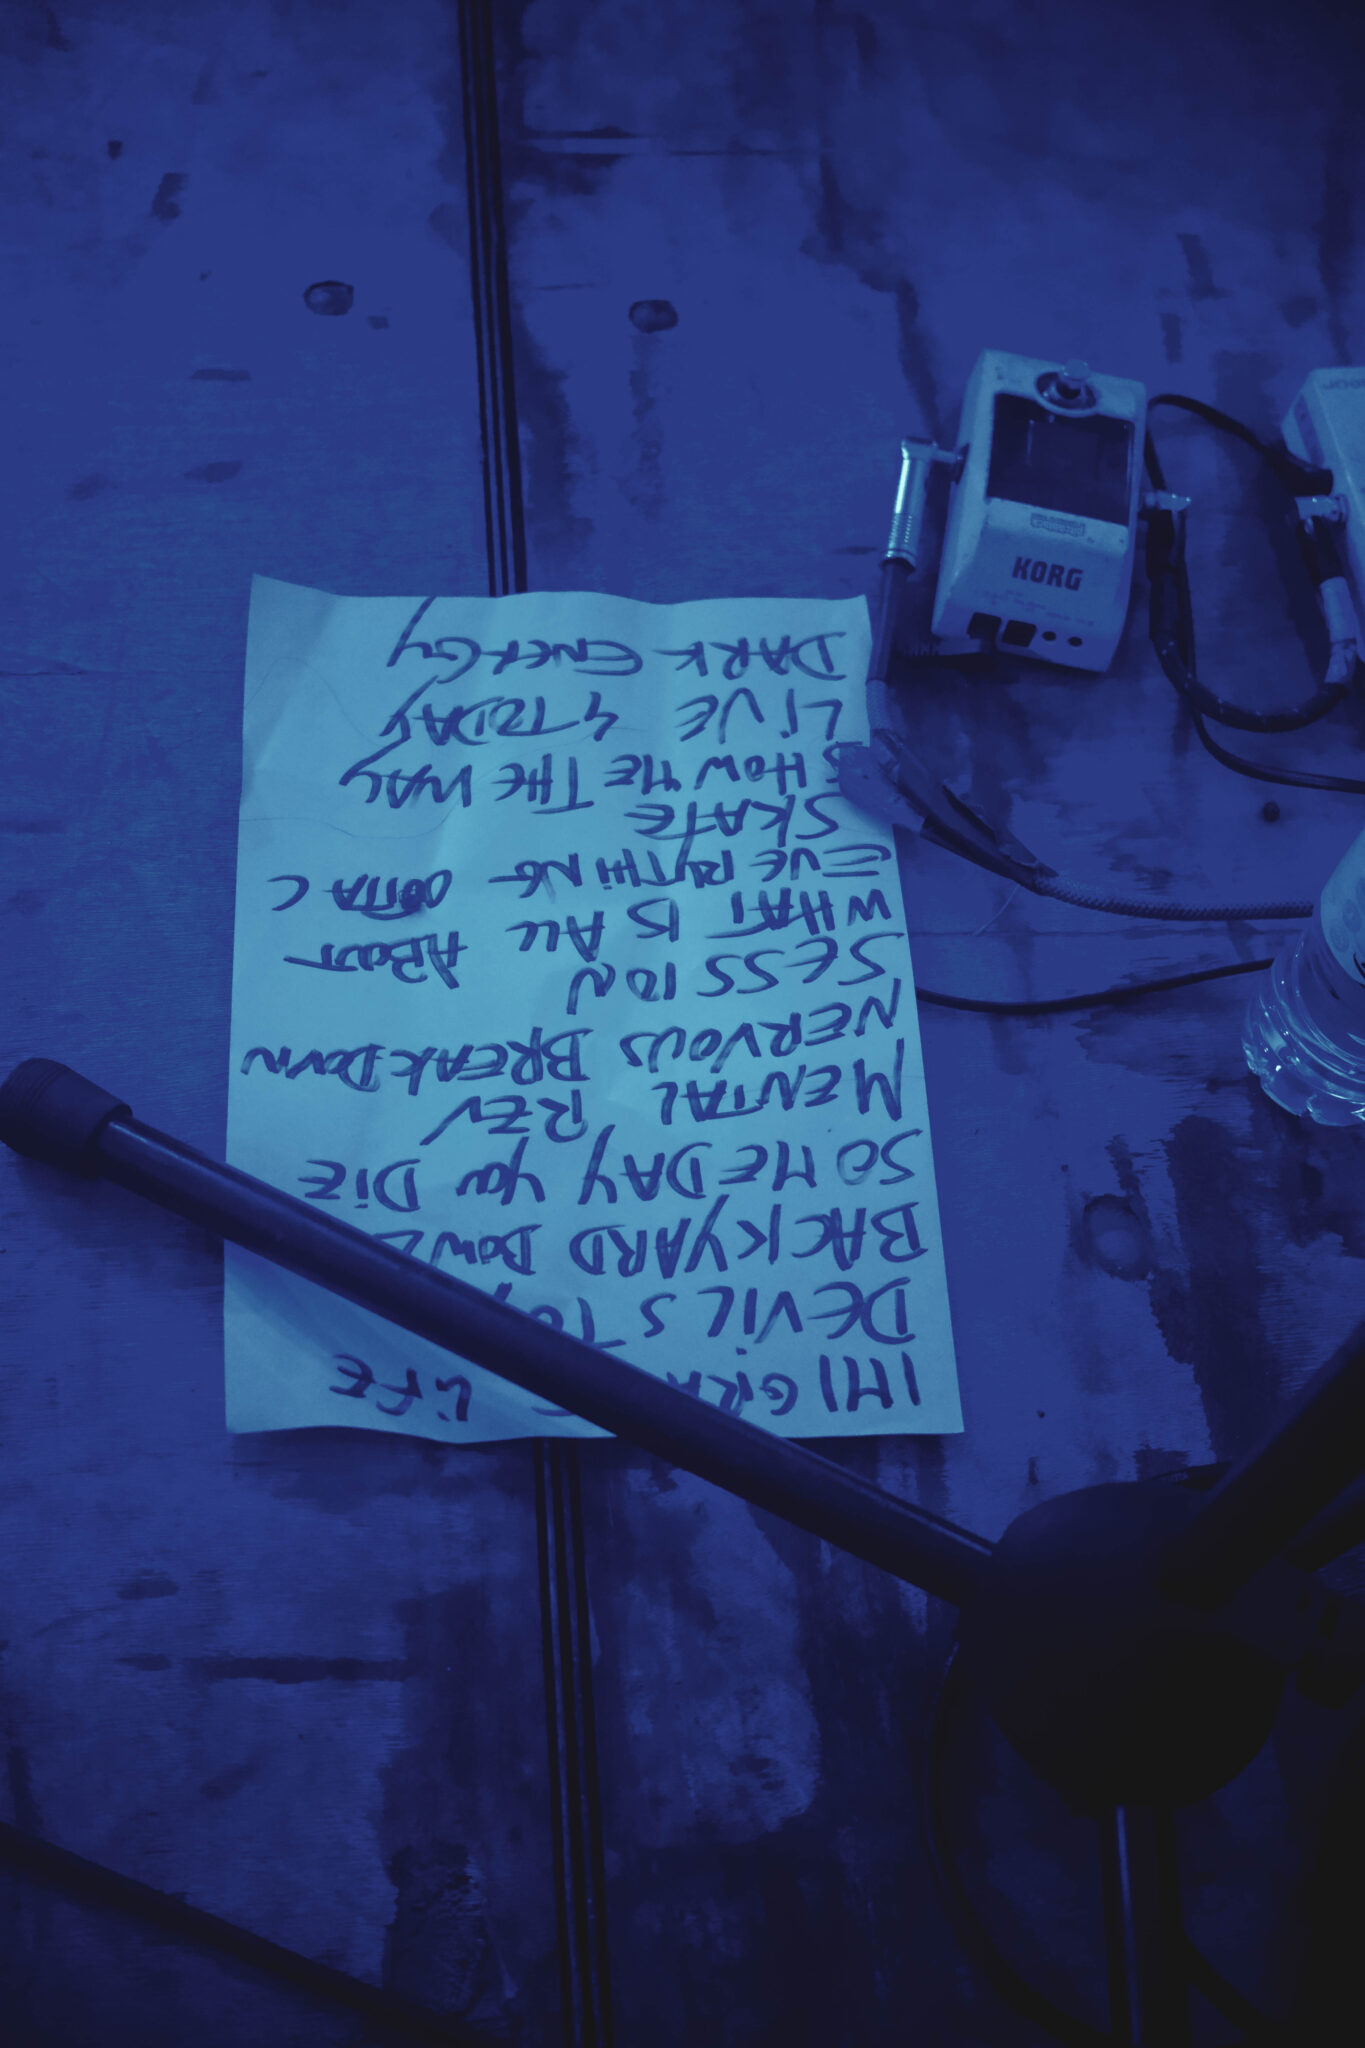 LIFE
DEVILS
BACKYARD
SOMEDAY YOU DIE
MENTAL REV
NERVOUS BREAKDOWN
SESSION
WHAT IS ALL ABOUT
EVERYTHING
SKATE
SHOW ME THE WAY
LIVE 4 TODAY
DARK ENERGY
KORG